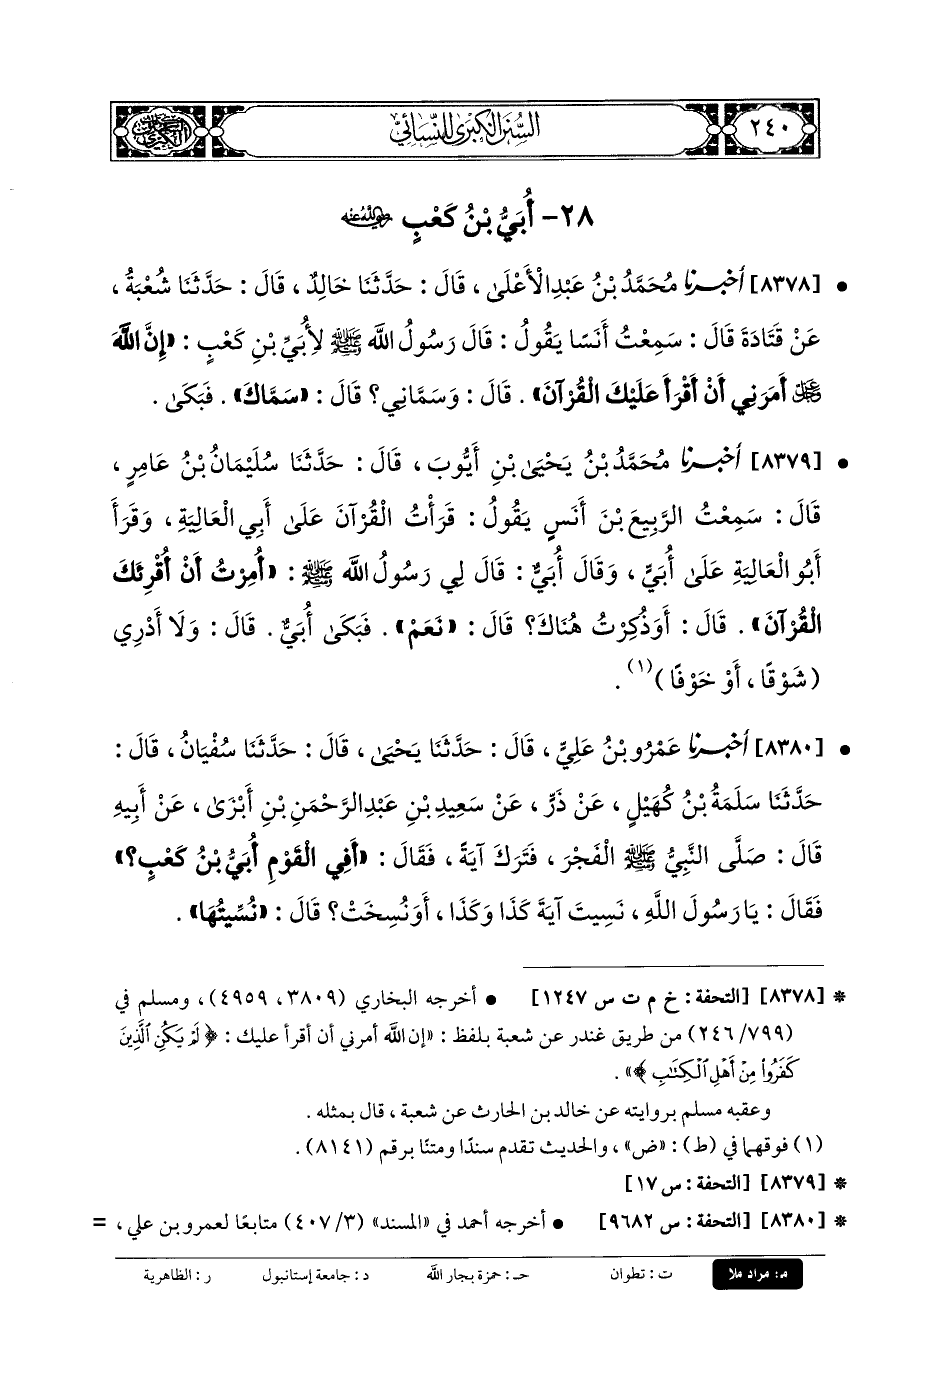 ٢٤٠
السنن الكبرى للنسائي
٢٨- أُبَيُّ بْنُ كَعْبٍ رضي الله عنه
• [٨٣٧٨] أخبرنا مُحَمَّدُ بْنُ عَبْدِالْأَعْلَى، قَالَ: حَدَّثَنَا خَالِدٌ، قَالَ: حَدَّثَنَا شُعْبَةُ،
عَنْ قَتَادَةَ قَالَ: سَمِعْتُ أَنَسًا يَقُولُ: قَالَ رَسُولُ اللَّه ﷺ لِأُبَيِّ بْنِ كَعْبٍ: «إِنَّ اللَّهَ
عز وجل أَمَرَنِي أَنْ أَقْرَأَ عَلَيْكَ الْقُرْآنَ». قَالَ: وَسَمَّانِي؟ قَالَ: «سَمَّاكَ». فَبَكَى.
• [٨٣٧٩] أخبرنا مُحَمَّدُ بْنُ يَحْيَى بْنِ أَيُّوبَ، قَالَ: حَدَّثَنَا سُلَيْمَانُ بْنُ عَامِرٍ،
قَالَ: سَمِعْتُ الرَّبِيعَ بْنَ أَنَسٍ يَقُولُ: قَرَأْتُ الْقُرْآنَ عَلَى أَبِي الْعَالِيَةِ، وَقَرَأَ
أَبُو الْعَالِيَةِ عَلَى أُبَيٍّ، وَقَالَ أُبَيٌّ: قَالَ لِي رَسُولُ اللَّه ﷺ: «أُمِرْتُ أَنْ أُقْرِئَكَ
الْقُرْآنَ». قَالَ: أَوَذُكِرْتُ هُنَاكَ؟ قَالَ: «نَعَمْ». فَبَكَى أُبَيٌّ. قَالَ: وَلَا أَدْرِي
(شَوْقًا، أَوْ خَوْفًا)(١).
• [٨٣٨٠] أخبرنا عَمْرُو بْنُ عَلِيٍّ، قَالَ: حَدَّثَنَا يَحْيَى، قَالَ: حَدَّثَنَا سُفْيَانُ، قَالَ:
حَدَّثَنَا سَلَمَةُ بْنُ كُهَيْلٍ، عَنْ ذَرٍّ، عَنْ سَعِيدِ بْنِ عَبْدِالرَّحْمَنِ بْنِ أَبْزَى، عَنْ أَبِيهِ
قَالَ: صَلَّى النَّبِيُّ ﷺ الْفَجْرَ، فَتَرَكَ آيَةً، فَقَالَ: «أَفِي الْقَوْمِ أُبَيُّ بْنُ كَعْبٍ؟»
فَقَالَ: يَا رَسُولَ اللَّهِ، نَسِيتَ آيَةَ كَذَا وَكَذَا، أَوَنُسِخَتْ؟ قَالَ: «نُسِّيتُهَا».
* [٨٣٧٨] [التحفة: خ م ت س ١٢٤٧] • أخرجه البخاري (٣٨٠٩، ٤٩٥٩)، ومسلم في
(٢٤٦/٧٩٩) من طريق غندر عن شعبة بلفظ: «إن الله أمرني أن أقرأ عليك: ﴿لَمْ يَكُنِ ٱلَّذِينَ
كَفَرُوا۟ مِنْ أَهْلِ ٱلْكِتَٰبِ﴾».
وعقبه مسلم بروايته عن خالد بن الحارث عن شعبة، قال بمثله.
(١) فوقهما في (ط): «ض»، والحديث تقدم سندًا ومتنًا برقم (٨١٤١).
* [٨٣٧٩] [التحفة: س ١٧]
* [٨٣٨٠] [التحفة: س ٩٦٨٢] • أخرجه أحمد في «المسند» (٤٠٧/٣) متابعًا لعمرو بن علي، =
م: مراد ملا ت: تطوان حـ: حمزة بجار الله د: جامعة إستانبول ر: الظاهرية